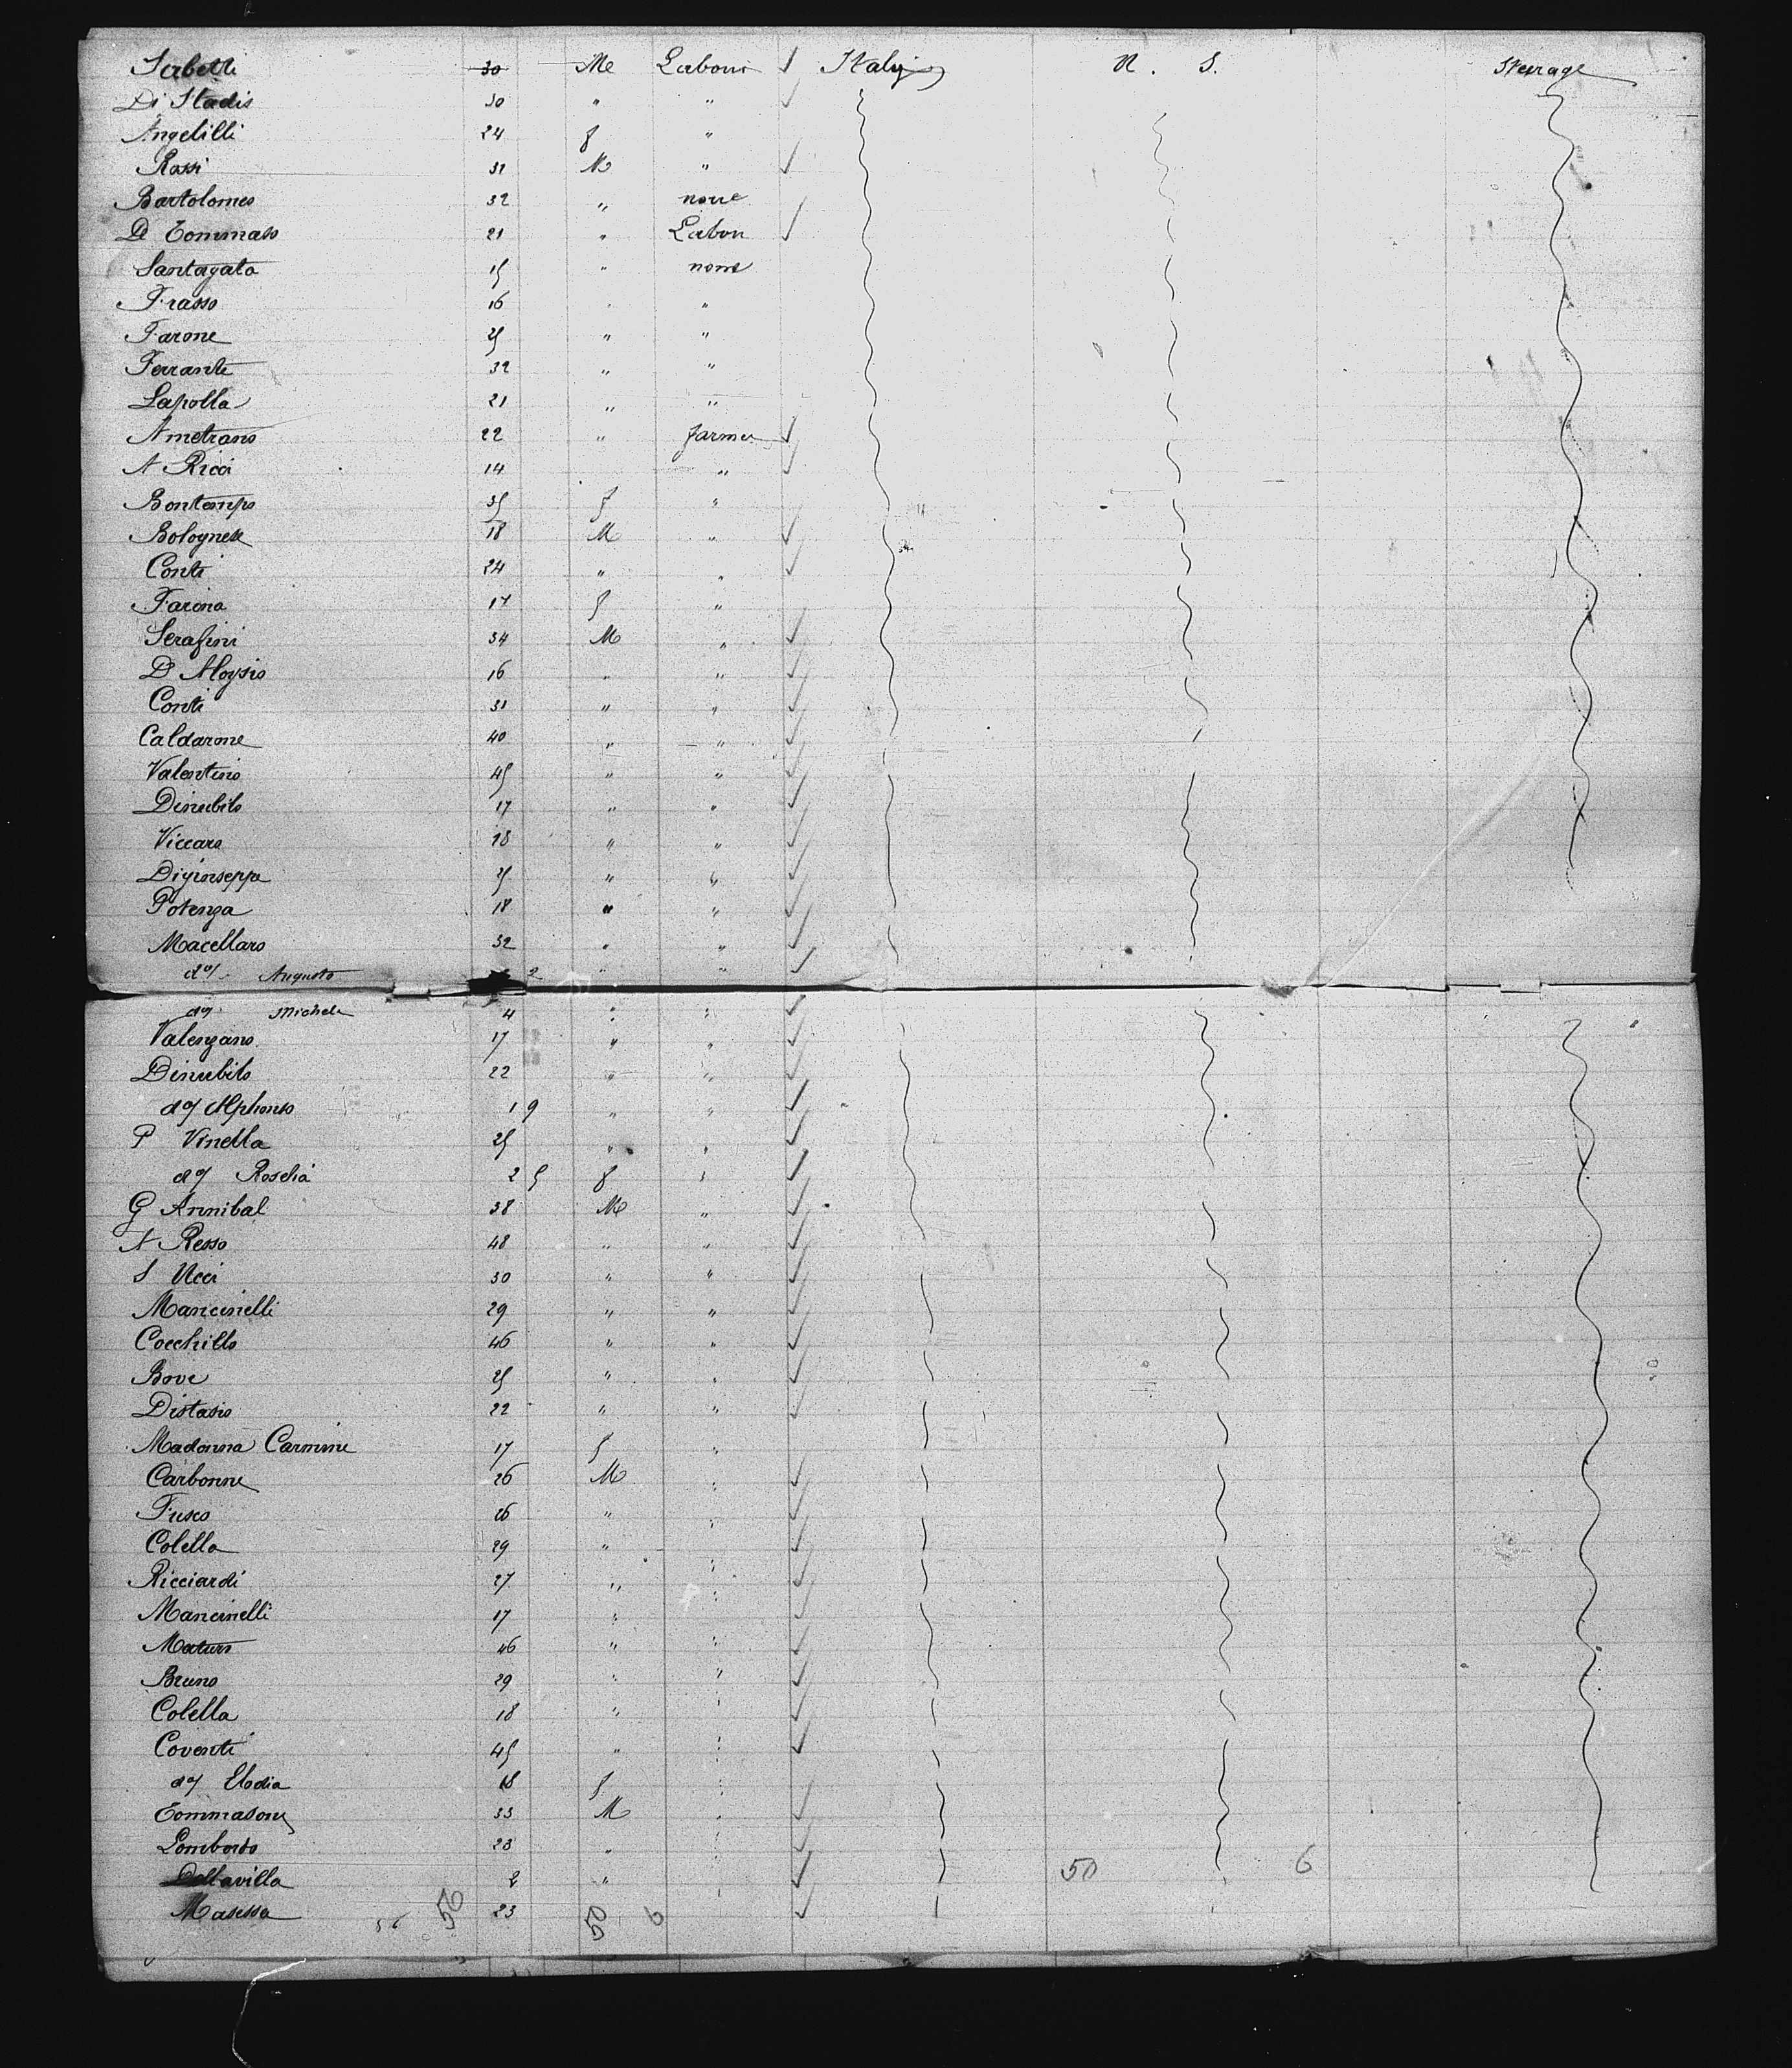 Serbelli 30 M Labour ✓ Italy U. S. Steerage
Di Stadis 30 " " ✓
Angelilli 24 f "
Rossi 31 M " ✓
Bartolomeo 32 " none
De Tommaso 21 " Labou ✓
Santagata 15 " none
Frasso 16 " "
Farone 25 " "
Ferrante 32 " "
Lapolla 21 " "
Ametrano 22 " farmer ✓
A Ricci 14 " ✓
Bontemps 35 f "
Bolognese 18 M " ✓
Conti 24 " " ✓
Farina 17 f "
Serafini 34 M " ✓
D Aloysio 16 " " ✓
Conti 31 " " ✓
Caldarone 40 " " ✓
Valentino 45 " " ✓
Dinubilo 17 " " ✓
Viccaro 18 " " ✓
Digiuseppa 25 " " ✓
Potenza 18 " " ✓
Macellaro 32 " " ✓
do/ Augusto 2 " " ✓
do/ Michele 4 " " ✓
Valenzano 17 " " ✓
Dinubilo 22 " " ✓
do/ Alphonso 1 9 " " ✓
P Vinella 25 " " ✓
do/ Roselia 2 5 f " ✓
G Annibal 38 M " ✓
A Resso 48 " " ✓
S Ucci 30 " " ✓
Mancinelli 29 " " ✓
Cocchillo 46 " " ✓
Bove 25 " " ✓
Distasio 22 " " ✓
Madonna Carmine 17 f "
Carbonne 26 M " ✓
Fusco 26 " " ✓
Colella 29 " " ✓
Ricciardi 27 " " ✓
Mancinelli 17 " " ✓
Maturo 46 " " ✓
Bruno 29 " " ✓
Colella 18 " " ✓
Coventi 45 " " ✓
do/ Elodia 18 f "
Tommasone 33 M " ✓
Lombardo 23 " " ✓
Dellavilla 2 " " ✓ 50 6
Masessa 56 56 23 50 6 " ✓